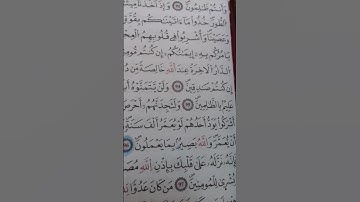 وَأَنتُمْ ظَالِمُونَ ﴿٩٢﴾ وَإِذْ أَخَذْنَا مِيثَـ
الطُّورَ خُذُوا مَا ءَاتَيْنَاكُم بِقُوَّةٍ
وَعَصَيْنَا وَأُشْرِبُوا فِي قُلُوبِهِمُ الْعِجْـ
يَأْمُرُكُم بِهِ إِيمَانُكُمْ إِن كُنتُم مُؤ
الدَّارُ الْآخِرَةُ عِندَ اللَّهِ خَالِصَةً مِّن دُ
كُنتُمْ صَادِقِينَ ﴿٩٤﴾ وَلَن يَتَمَنَّوْهُ أَبَـ
عَلِيمٌ بِالظَّالِمِينَ ﴿٩٥﴾ وَلَتَجِدَنَّهُمْ أَحْرَصَ
أَشْرَكُوا يَوَدُّ أَحَدُهُمْ لَوْ يُعَمَّرُ أَلْفَ سَنَةٍ
أَن يُعَمَّرَ وَاللَّهُ بَصِيرٌ بِمَا يَعْمَلُونَ ﴿٩٦﴾
فَإِنَّهُ نَزَّلَهُ عَلَى قَلْبِكَ بِإِذْنِ اللَّهِ مُصَـ
وَبُشْرَى لِلْمُؤْمِنِينَ ﴿٩٧﴾ مَن كَانَ عَدُوًّا